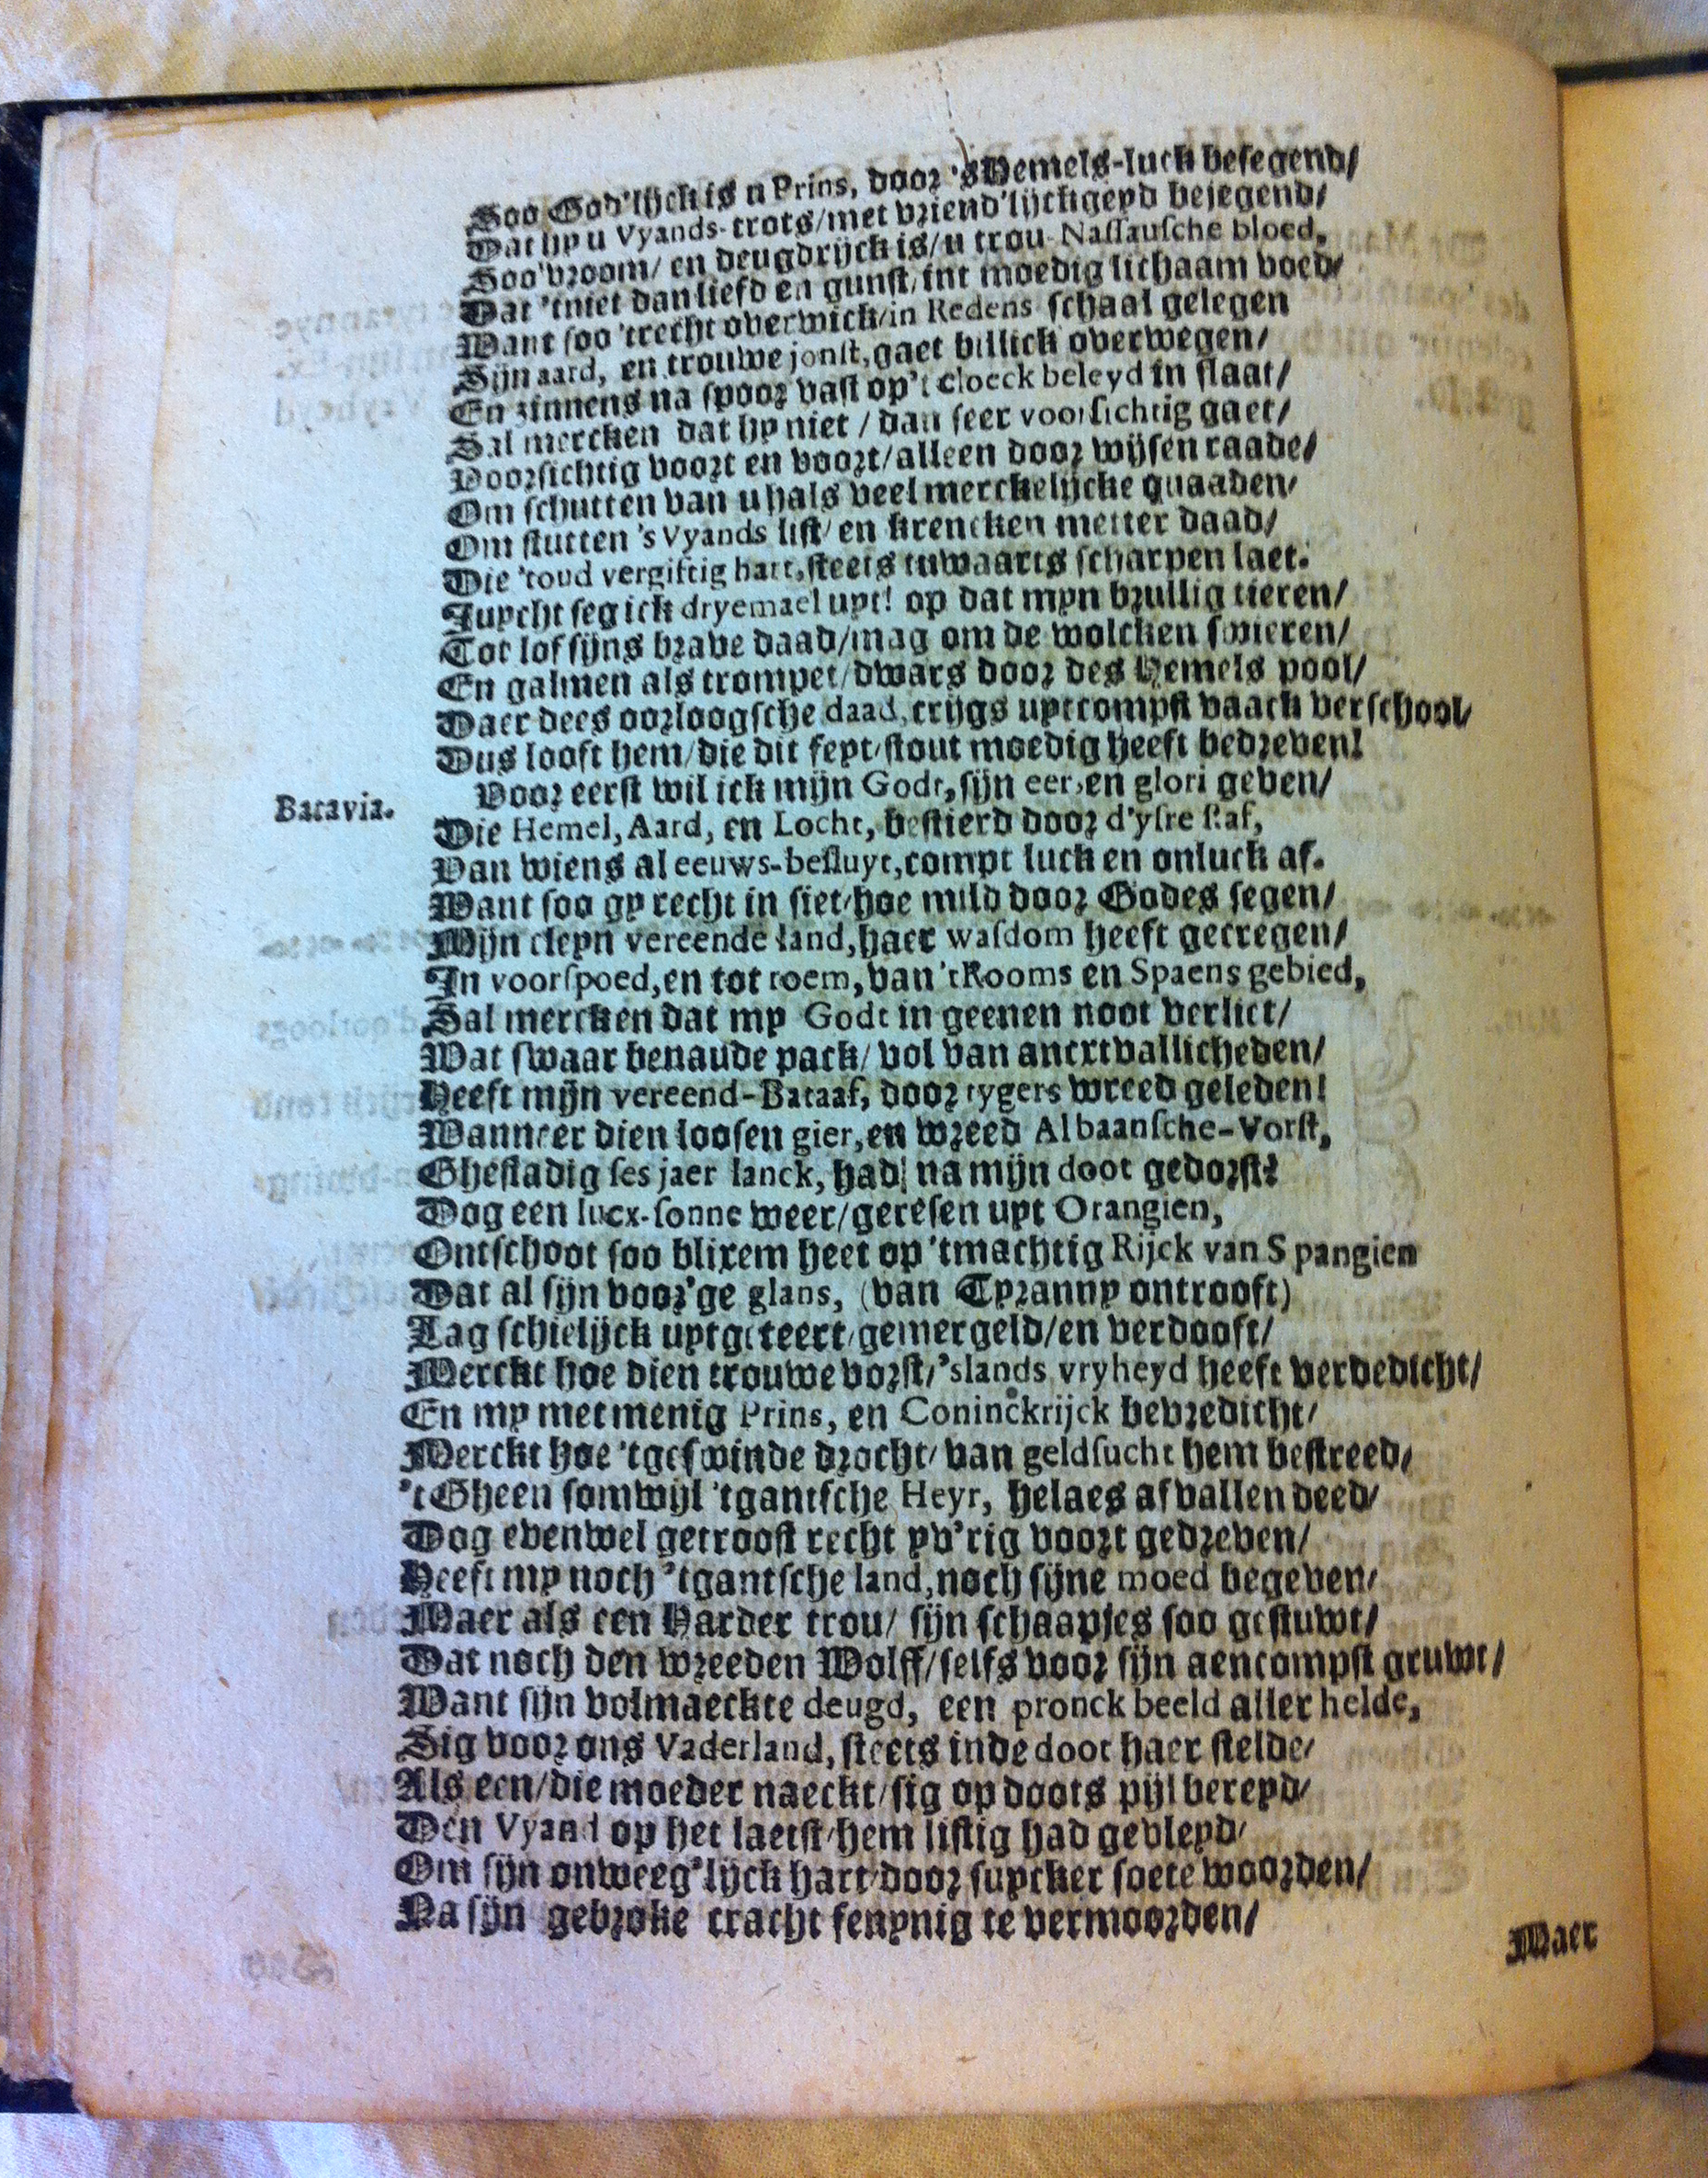 Soo God'lijck is u Prins, door 's Hemels-luck besegend/
Dat hy u Vyands-trots/met vriend'lijckheyd bejegend/
Soo vroom/ en deugdrijck is/u trou-Nassausche bloed,
Dat 'tniet dan liefd en gunst/int moedig lichaam voed/
Want soo 'trecht overwick/in Redens schaal gelegen
Sijn aard, en trouwe jonst, gaet billick overwegen/
En zinnens na spoor vast op't cloeck beleyd in slaat/
Sal mercken dat hy niet / dan seer voorsichtig gaet/
Voorsichtig voort en voort/alleen door wijsen raade/
Om schutten van u hals veel merckelijcke quaaden/
Om stutten 's Vyands list/ en krencken metter daad/
Die 'toud vergiftig hart, steets tuwaarts scharpen laet.
Juycht seg ick dryemael uyt! op dat myn brullig tieren/
Tot lof sijns brave daad/mag om de wolcken swieren/
En galmen als trompet/dwars door des Hemels pool/
Daer dees oorloogsche daad, crijgs uytcompst vaack verschool/
Dus looft hem/die dit feyt/stout moedig heeft bedreven!
Batavia.
Voor eerst wil ick mijn Godt, sijn eer, en glori geven/
Die Hemel, Aard, en Locht, bestierd door d'ysre staf,
Van wiens al eeuws-besluyt, compt luck en onluck af.
Want soo gy recht in siet/hoe mild door Godes segen/
Mijn cleyn vereende land, haer wasdom heeft gecregen/
In voorspoed, en tot roem, van 'tRooms en Spaens gebied,
Sal mercken dat my Godt in geenen noot verliet/
Wat swaar benaude pack/ vol van anxtvallicheden/
Heeft mijn vereend-Bataaf, door tygers wreed geleden!
Wanneer dien loosen gier, en wreed Albaansche-Vorst,
Ghestadig ses jaer lanck, had na mijn doot gedorst?
Dog een lucx-sonne weer/geresen uyt Orangien,
Ontschoot soo blixem heet op 'tmachtig Rijck van Spangien
Dat al sijn voor'ge glans, (van Tyranny ontrooft)
Lag schielijck uytgeteert/gemergeld/en verdooft/
Merckt hoe dien trouwe vorst/'slands vryheyd heeft verdedicht/
En my met menig Prins, en Coninckrijck bevredicht/
Merckt hoe 'tgeswinde drocht/ van geldsucht hem bestreed/
't Gheen somwijl 'tgantsche Heyr, helaes afvallen deed/
Dog evenwel getroost recht yv'rig voort gedreven/
Heeft my noch 'tgantsche land, noch sijne moed begeven/
Maer als een Harder trou/ sijn schaapjes soo gestuwt/
Dat noch den wreeden Wolff/selfs voor sijn aencompst gruwt/
Want sijn volmaeckte deugd, een pronck beeld aller helde,
Sig voor ons Vaderland, steets inde doot haer stelde/
Als een/die moeder naeckt/sig op doots pijl bereyd/
Den Vyand op het laetst/hem listig had gevleyd/
Om sijn onweeg'lijck hart/door suycker soete woorden/
Na sijn gebroke cracht fenynig te vermoorden/
Maer